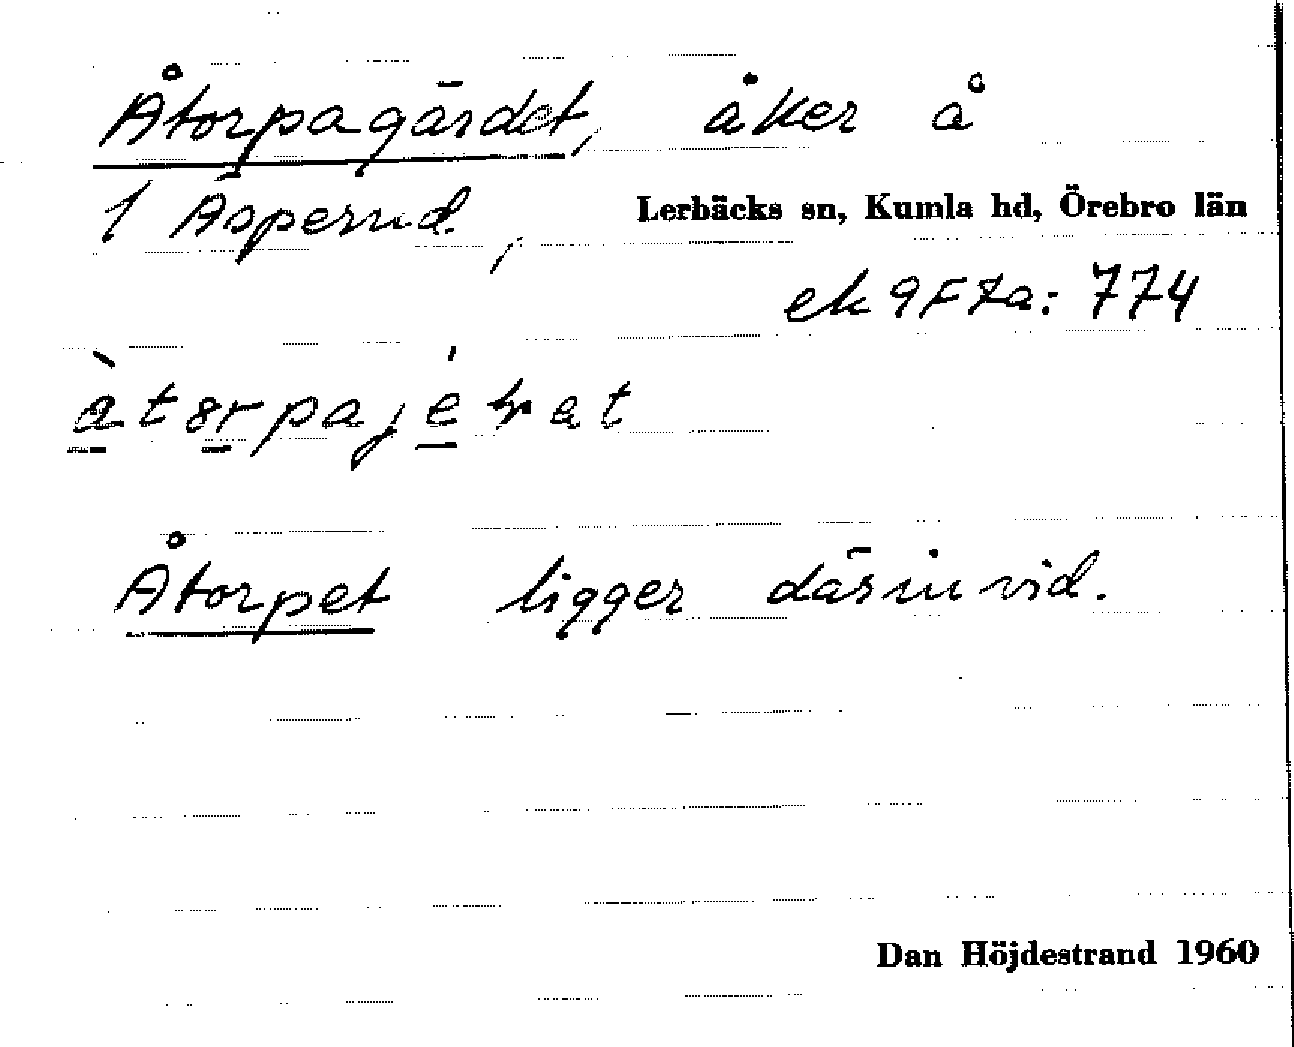 Åtorpagärdet, åker å
1 Äsperud,
Lerbäcks sn, Kumla hd, Örebro län
ek 9F7a: 774
Åtorpet ligger därinvid.
Dan Höjdestrand 1960